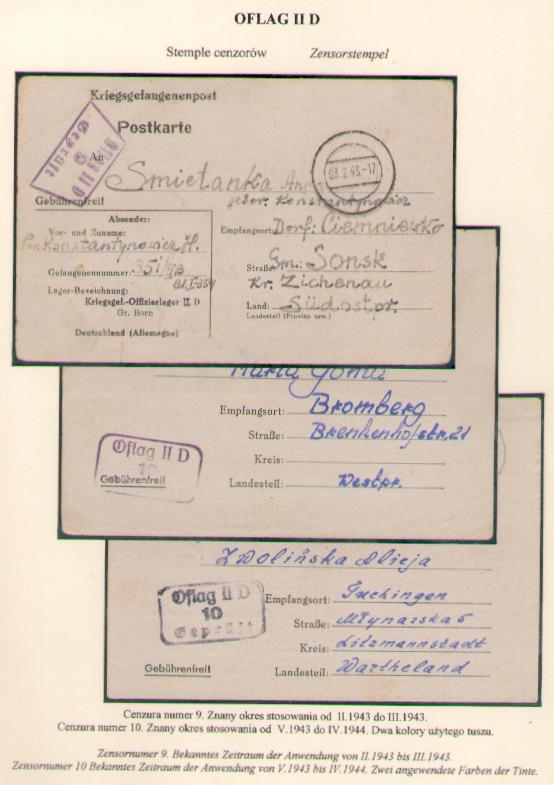 OFLAG II D
Stemple cenzorów Zensorstempel
Kriegsgefangenenpost
Postkarte
Oflag II D
9
Geprüft
An
Smietanka
geber. Konstantynowicz
03.2.43.-17
Gebührenfrei!
Absender:
Vor- und Zuname:
Konstantynowicz H.
Gefangenennummer: 351/
Lager-Bezeichnung:
Kriegsgef.-Offizierlager II D
Gr. Born
Deutschland (Allemagne)
Empfangsort: Dorf: Ciemniewko
Straße: Gm: Sonsk
Kr. Zichenau
Land: Südostpr.
Landesteil (Provinz usw.)
Empfangsort: Bromberg
Straße: Brenkenhofstr. 21
Kreis:
Landesteil: Westpr.
Oflag II D
10
Gebührenfrei!
Zwolińska Alicja
Oflag II D
10
Geprüft
Empfangsort: Tuchingen
Straße: Młynarska 6
Kreis: Litzmannstadt
Landesteil: Wartheland
Gebührenfrei!
Cenzura numer 9. Znany okres stosowania od II.1943 do III.1943.
Cenzura numer 10. Znany okres stosowania od V.1943 do IV.1944. Dwa kolory użytego tuszu.
Zensornumer 9. Bekanntes Zeitraum der Anwendung von II.1943 bis III.1943.
Zensornumer 10 Bekanntes Zeitraum der Anwendung von V.1943 bis IV.1944. Zwei angewendete Farben der Tinte.